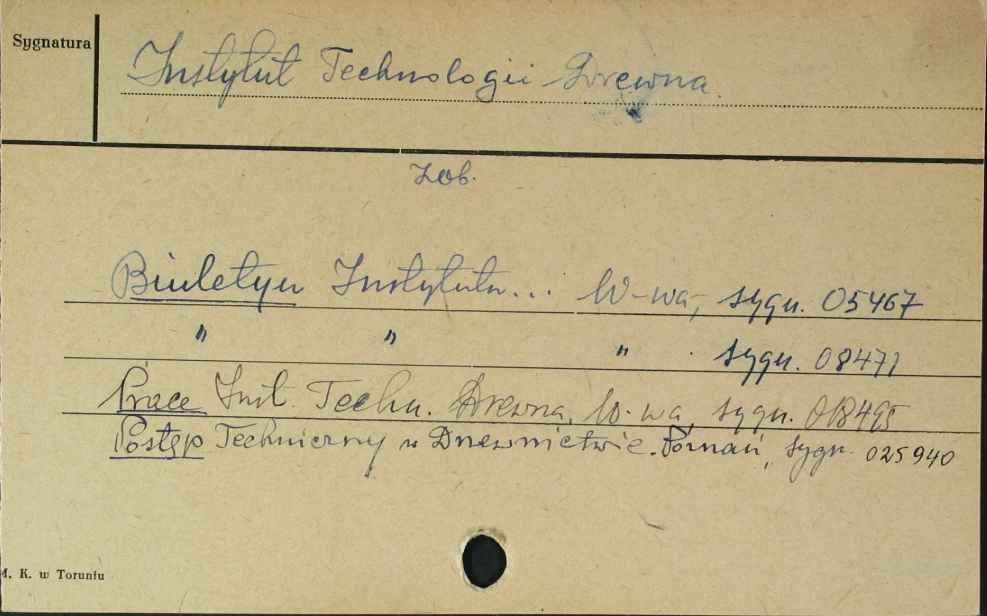 Sygnatura
Instytut Technologii Drewna
Zob.
Biuletyn Instytutu... W-wa, sygn. 05467
" " " sygn. 08471
Prace Inst. Techn. Drewna, W-wa, sygn. 018495
Postęp Techniczny w Drzewnictwie. Poznań, sygn. 025940
M. K. w Toruniu